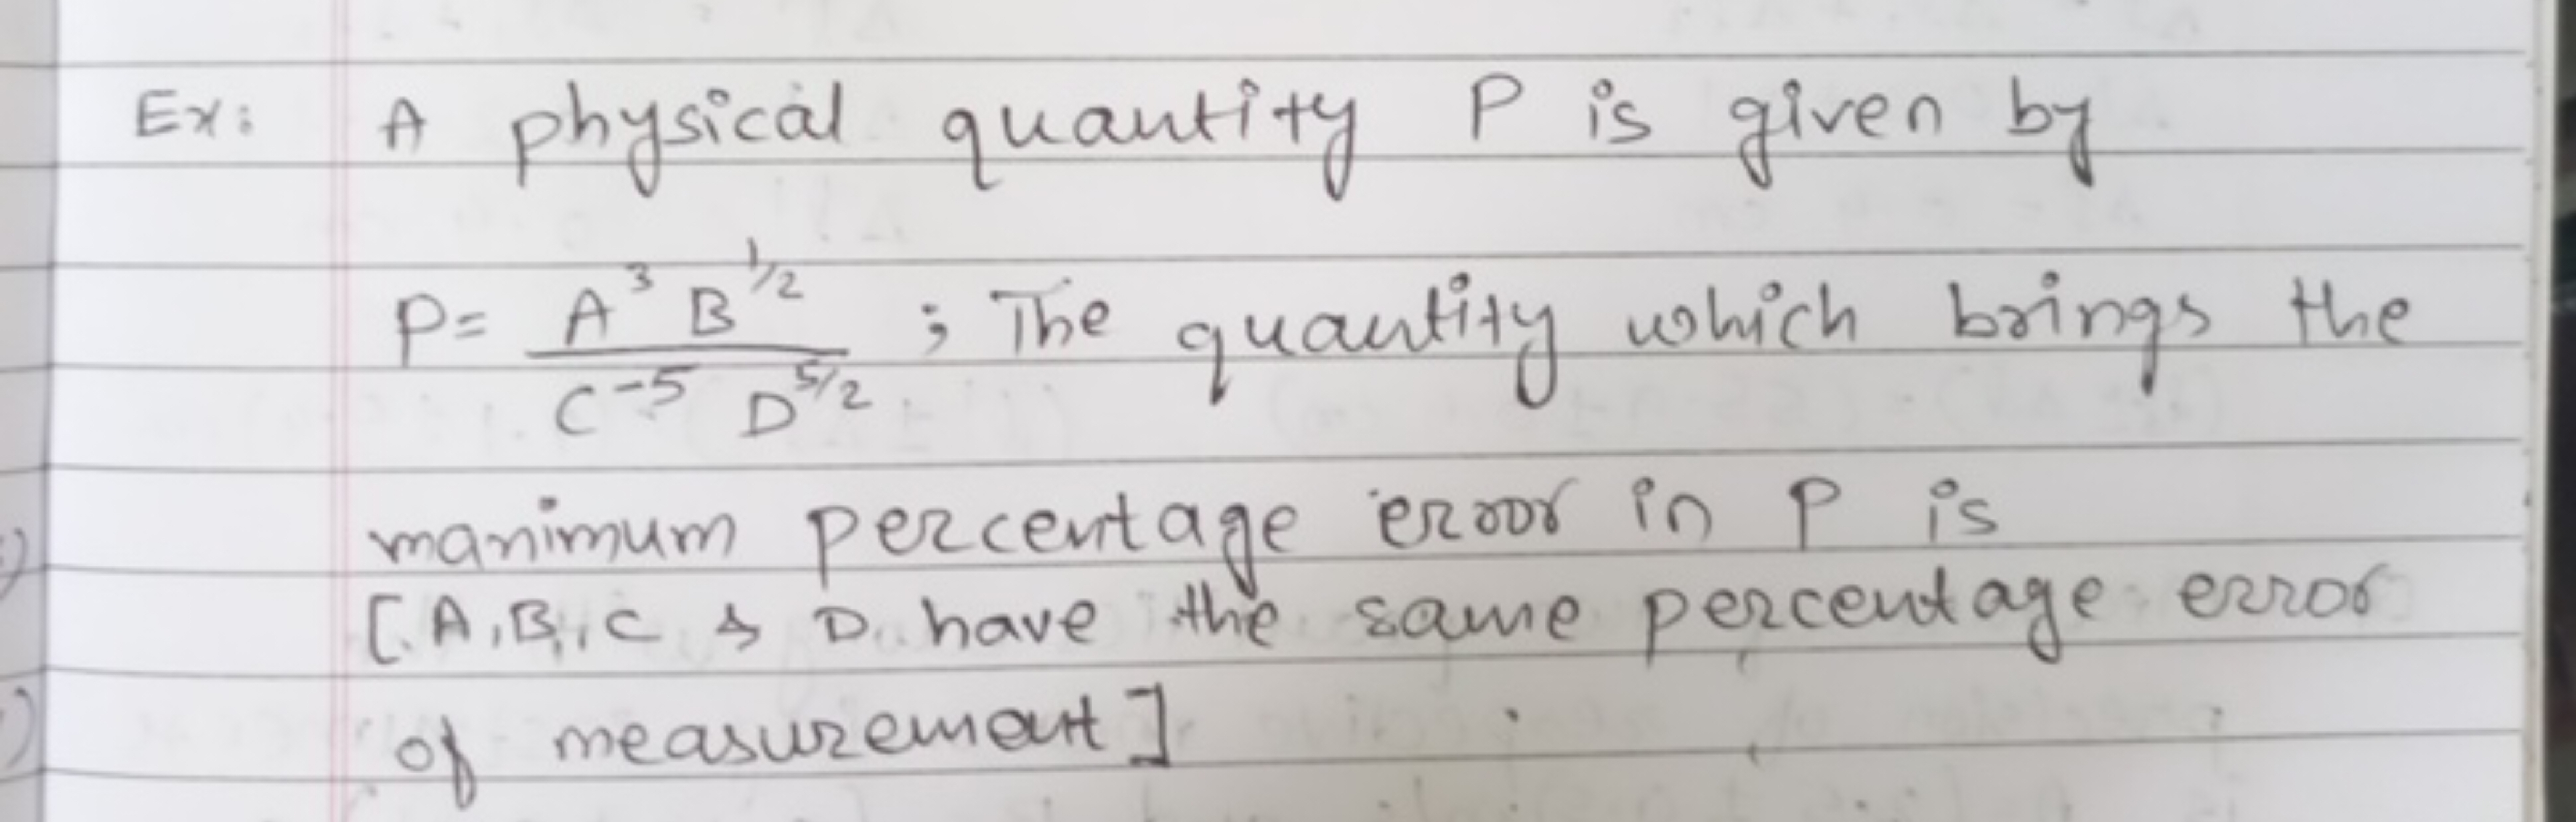 Ex: A physical quantity P is given by
P = A³ B^1/2 / C^-5 D^5/2 ; The quantity which brings the
manimum percentage error in P is
[A, B, C & D have the same percentage error
of measurement]